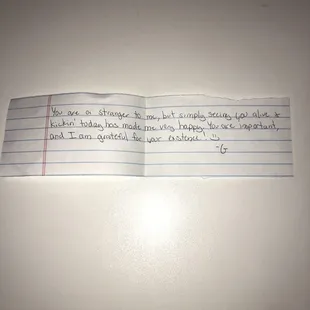 You are a stranger to me, but simply seeing you alive &
kickin' today has made me very happy. You are important,
and I am grateful for your existence! :)
-G